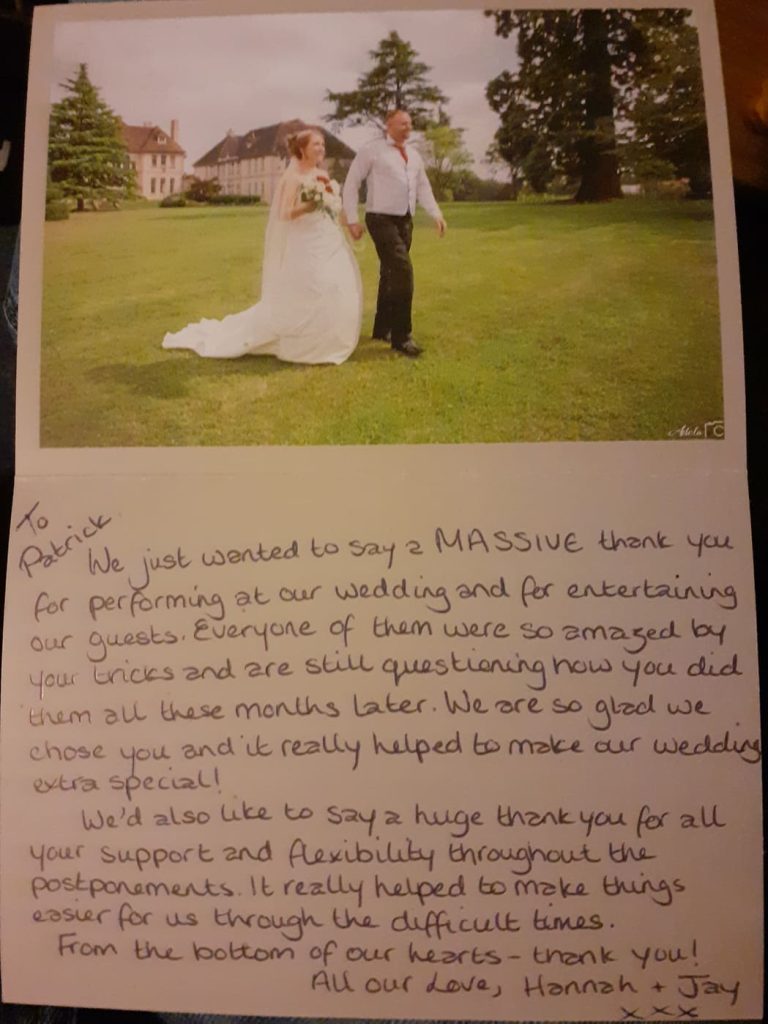 Adela
To
Patrick
We just wanted to say a MASSIVE thank you
for performing at our wedding and for entertaining
our guests. Everyone of them were so amazed by
your tricks and are still questioning how you did
them all these months later. We are so glad we
chose you and it really helped to make our wedding
extra special!
We'd also like to say a huge thank you for all
your support and flexibility throughout the
postponements. It really helped to make things
easier for us through the difficult times.
From the bottom of our hearts - thank you!
All our Love, Hannah + Jay
xxx